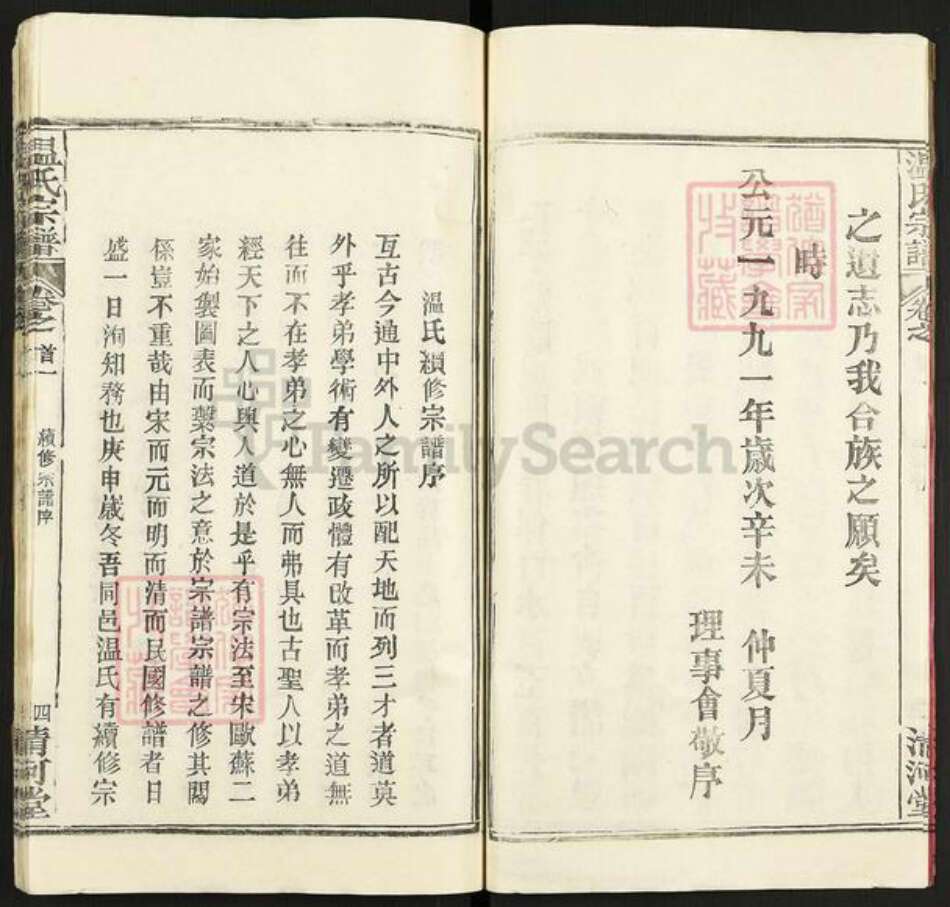 温氏宗譜
卷之
清河堂
之道志乃我合族之願矣
時
公元一九九一年歲次辛未 仲夏月
理事會敬序
温氏續修宗譜序
亙古今通中外人之所以配天地而列三才者道莫
外乎孝弟學術有變遷政體有改革而孝弟之道無
往而不在孝弟之心無人而弗具也古聖人以孝弟
經天下之人心與人道於是乎有宗法至宋歐蘇二
家始製圖表而藥宗法之意於宗譜宗譜之修其関
係豈不重哉由宋而元而明而清而民國修譜者日
盛一日洵知務也庚申歲冬吾同邑温氏有續修宗
温氏宗譜
卷之
首一
續修宗譜序
四
清河堂
FamilySearch